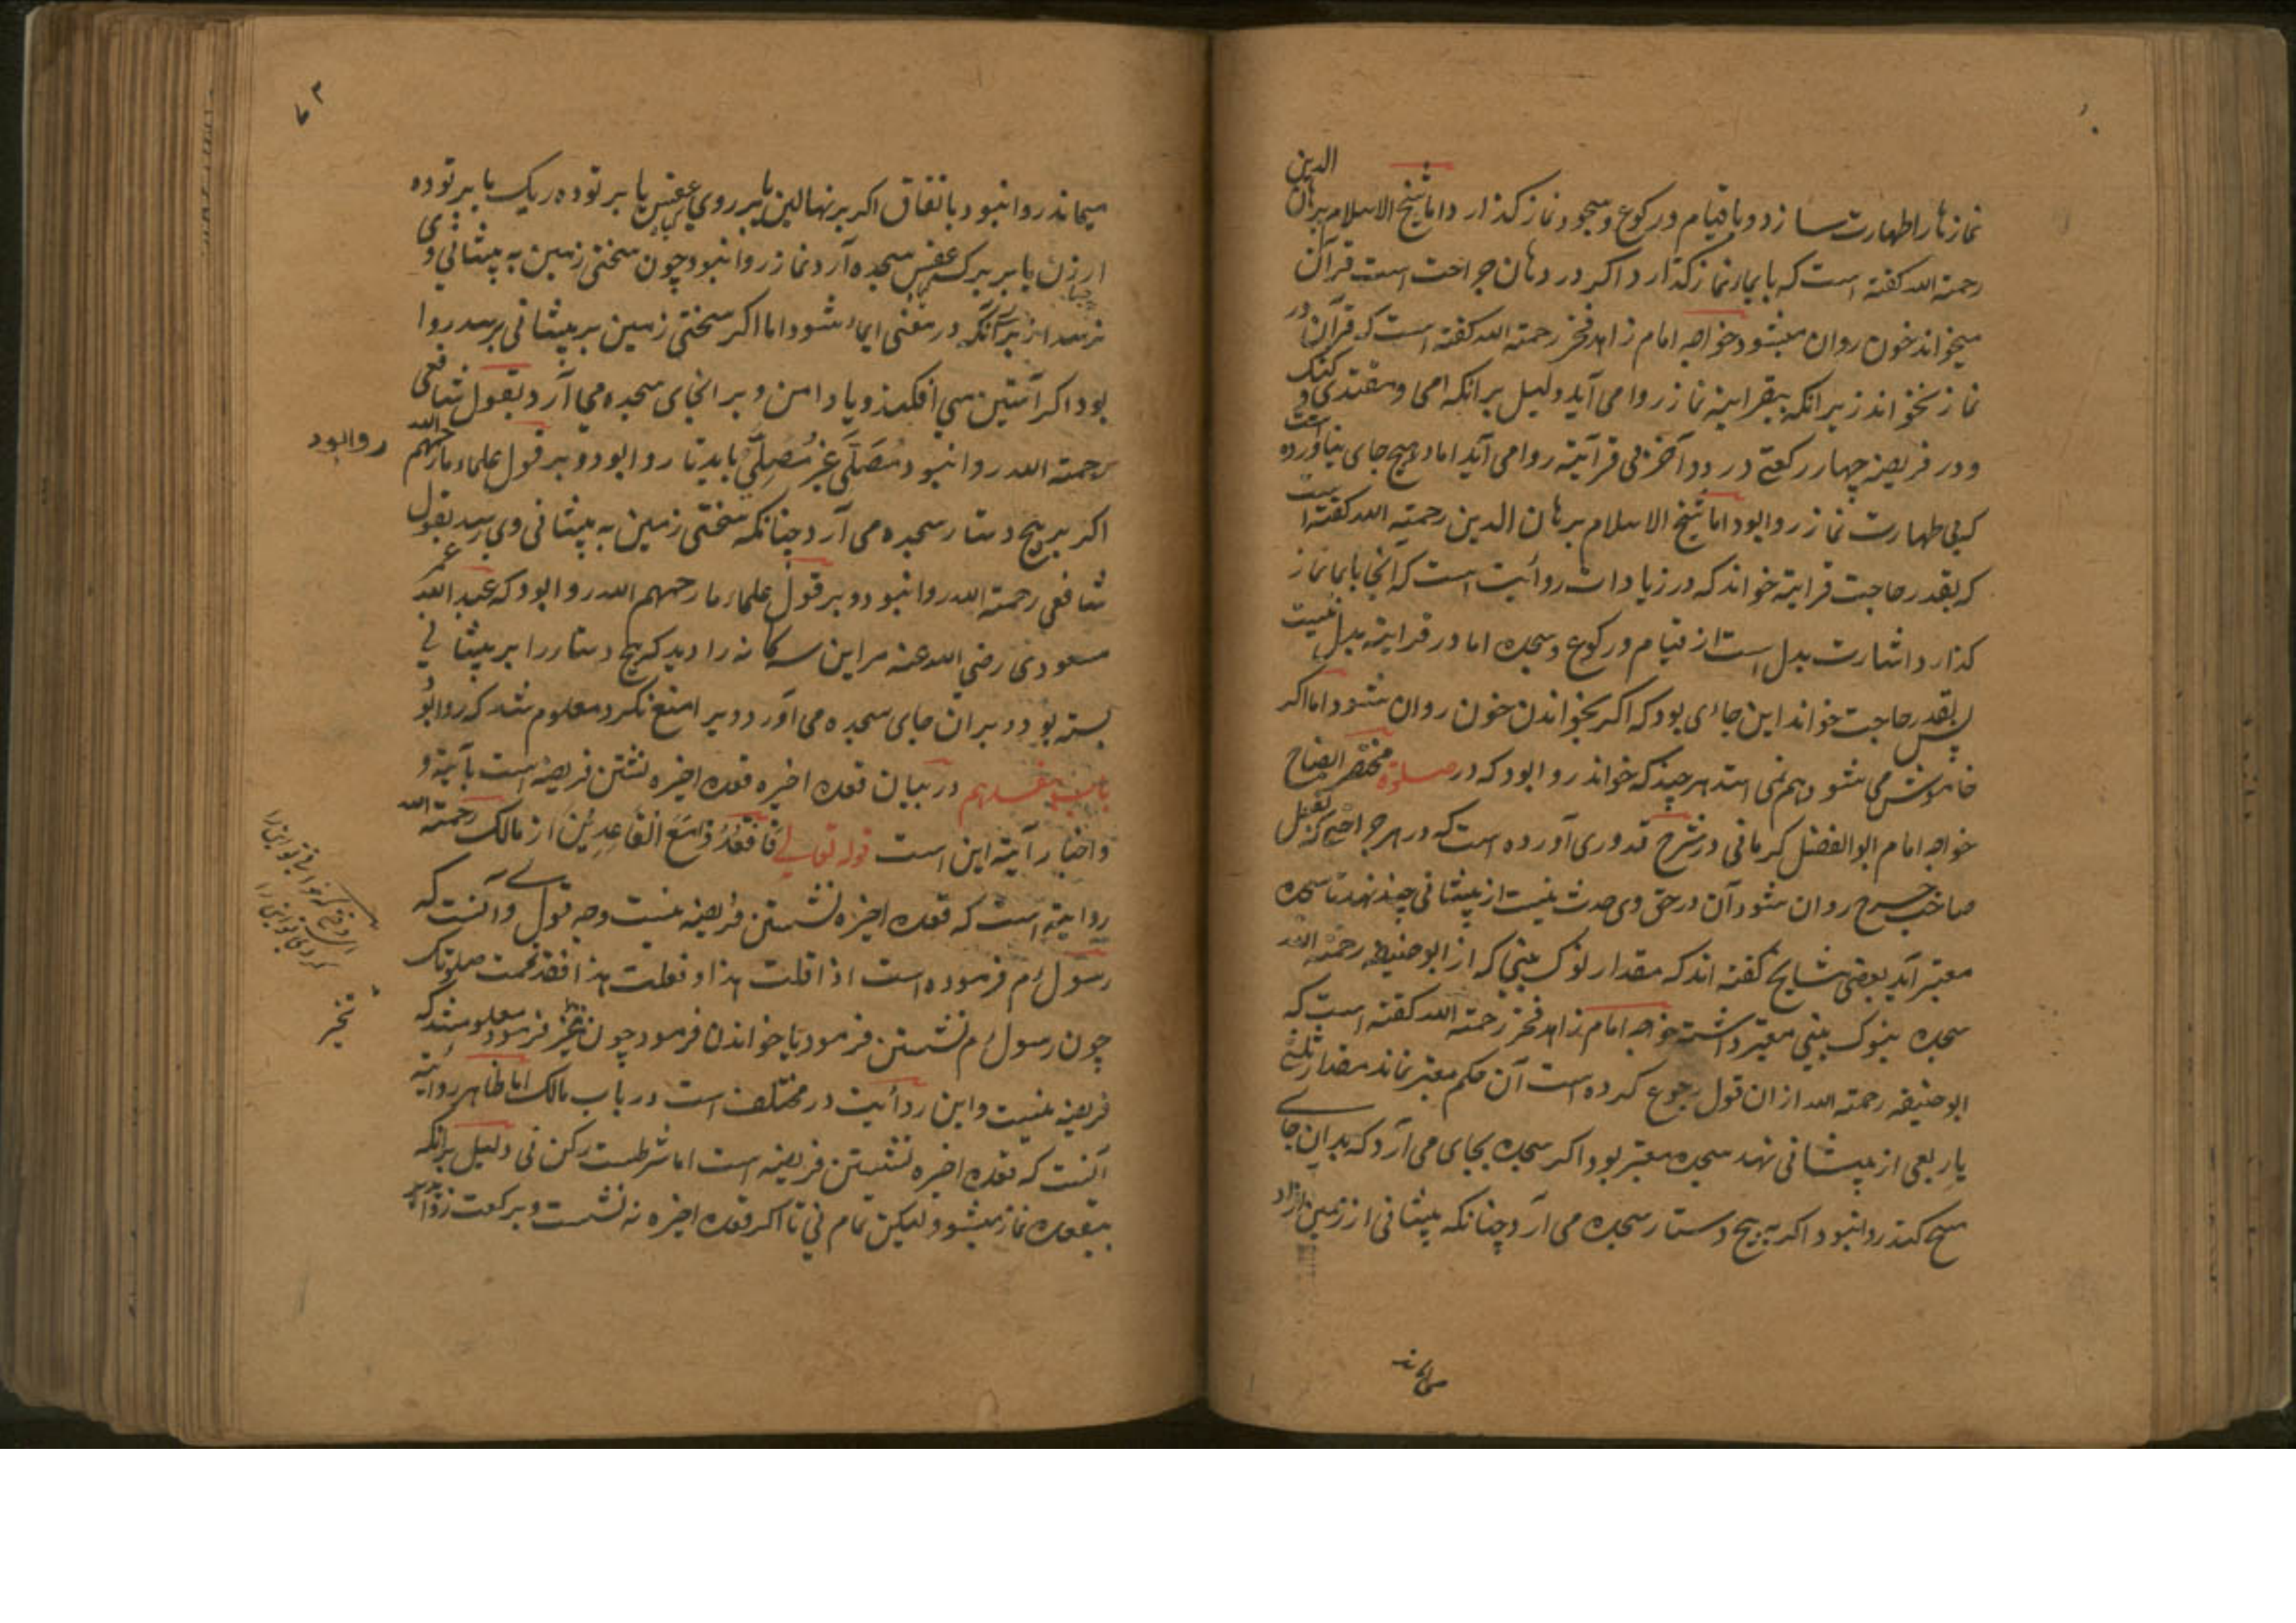 نماز نا را طهارت سازد و با قیام و رکوع و سجود نماز گذارد اما شیخ الاسلام برهان الدین
رحمته الله کفته است که بایما نماز کذارد اکر در دهان جراحت است قرآن
میخواند خون روان میشود خواجه امام زاهد فخر رحمته الله کفته است که قرآن در
نماز نخواند زیرانکه بیقرایته نماز روا می آید دلیل برانکه امی و مقتدی و کنک
و در فریضه چهار رکعتی در دو آخر بی قرآیته روا می آید اما در هیچ جای نیاورده است
که بی طهارت نماز روا بود اما شیخ الاسلام برهان الدین رحمته الله کفته است
که بقدر حاجت قرایته خواند که در زیادات روائیت است که آنجا بایما نماز
کذارد اشارت بدل است از قیام و رکوع و سجده اما در قرایته بدل نیست
پس بقدر حاجت خواند این جائی بود که اکر بخواندن خون روان شود اما اکر
خاموش می شود هم نمی استد هر چند که خواند روا بود که در صلوة مختصر
خواجه امام ابو الفضل کرمانی در شرح قدوری آورده است که در هر جراحتی که بفعل
صاحب جرح روان شود آن در حق وی حدث نیست از پیشانی چند نهد تا سجده
معتبر آید بعضی مشایخ کفته اند که مقدار نوک بینی که از ابو حنیفه رحمته الله
سجده بنوک بینی معتبر داشته خواجه امام زاهد فخر رحمته الله کفته است که
ابو حنیفه رحمته الله از ان قول رجوع کرده است آن حکم معتبر نماند مقدار ثلثی
یا ربعی از پیشانی نهد سجده معتبر بود اکر سجده بجای می آرد که بدان جای
مسح کند روا نبود اکر به پیچ دستار سجده می آرد چنانکه پیشانی از زمین
۷۳
میماند روا نبود باتفاق اکر بر نهالین یا بر روی یا بر توده ریک یا بر توده
ارزن یا بر برک سجده آرد نماز روا نبود چون سختی زمین به پیشانی وی
نرسد از برای آنکه در معنی ایما شود اما اکر سختی زمین بر پیشانی برسد روا
بود اکر آستین می افکند و یا دامن و بر انجای سجده می آرد بقول شافعی
رحمته الله روا نبود مُصَلّی غیر مُصَلِّی باید تا روا بود و بر قول علماء ما رحمهم الله
روا بود
اکر بر پیچ دستار سجده می آرد چنانکه سختی زمین به پیشانی وی برسد بقول
شافعی رحمته الله روا نبود و بر قول علماء ما رحمهم الله روا بود که عبد الله
مسعودی رضی الله عنه مر این سه کانه را دید که پیچ دستار را بر پیشانی
بسته بود و بران جای سجده می آورد ویرا منع نکرد معلوم شد که روا بود
باب هفدهم در بیان قعده اخیره قعده اخیره نشتن فریضه است بآیته و
و اخبار آیته این است قوله تعالی فَاقْعُدُوا مَعَ الْقَاعِدِیْنَ از مالک رحمته الله
روایته است که قعده اخیره نشستن فریضه نیست وجه قول وی آنست که
رسول م فرموده است اذا قلت هذا او فعلت هذا فقد تمت صلوتک
چون رسول م نشستن فرمود یا خواندن فرمود چون فرمود معلوم شد که
فریضه نیست و این روائیت در مختلف است در باب مالک اما ظاهر روائیة
آنست که قعده اخیره نشستن فریضه است اما شرطست رکن نی دلیل برانکه
بیقعده نماز میشود لیکن تمام نی تا اکر قعده اخیره نه نشست و برکعت